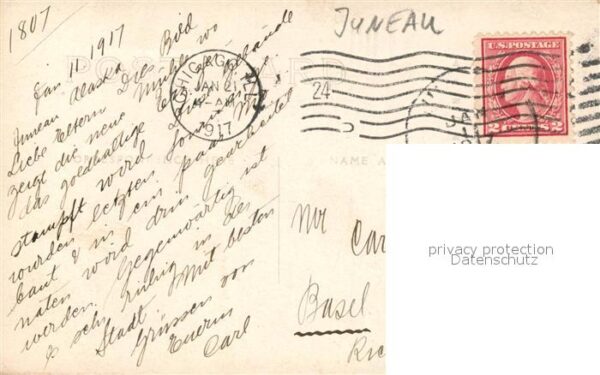 1807
JUNEAU
Jan 11. 1917
Juneau Alaska
Liebe Eltern Dies Bild
zeigt die neue Mühle wo
das goldhaltige Erz
stampft wird
wurden letzten Sommer
baut & in ein paar Mo
naten wird drin gearbeitet
werden. Gegenwärtig ist
es sehr ruhig in der
Stadt. Mit besten
Grüssen von
Euerm
Carl
CHICAGO, ILL.
JAN 21
1917
24
U.S. POSTAGE
2 2
POST CARD
NAME A
Mr Car
Basel
privacy protection
Datenschutz